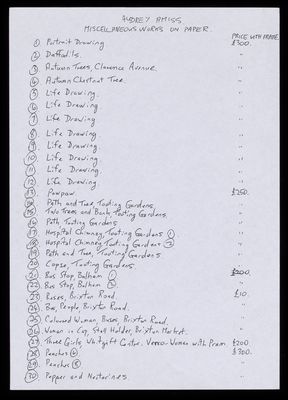 AUDREY AMISS
MISCELLANEOUS WORKS ON PAPER.
PRICE WITH FRAME
① Portrait Drawing £300.
② Daffodils. "
③ Autumn Trees, Clarence Avenue. "
④ Autumn Chestnut Tree. "
⑤ Life Drawing. "
⑥ Life Drawing. "
⑦ Life Drawing "
⑧ Life Drawing. "
⑨ Life Drawing. "
⑩ Life Drawing. "
⑪ Life Drawing. "
⑫ Life Drawing. "
⑬ Pawpaw. £250.
⑭ Path and Tree, Tooting Gardens "
⑮ Two Trees and Bank, Tooting Gardens. "
⑯ Path Tooting Gardens "
⑰ Hospital Chimney, Tooting Gardens ① "
⑱ Hospital Chimney, Tooting Gardens ② "
⑲ Path and Tree, Tooting Gardens "
⑳ Copse, Tooting Gardens "
㉑ Bus Stop, Balham ① £200.
㉒ Bus Stop, Balham ② "
㉓ Buses, Brixton Road. £10.
㉔ Bus, People, Brixton Road. "
㉕ Coloured Woman, Buses, Brixton Road. "
㉖ Woman in Cap, Stall Holder, Brixton Market. "
㉗ Three Girls, Whitgift Centre. Verso-Women with Pram £200
㉘ Peaches £300.
㉙ Peaches "
㉚ Pepper and Nectarines. "